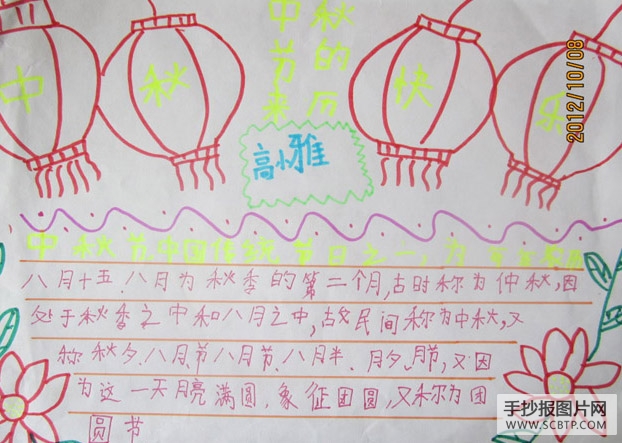 中秋
节的
来历
中 秋 快 乐
2012/10/08
高小雅
中秋节中国传统节日之一,为
八月十五.八月为秋季的第二个月,古时称为仲秋,因
处于秋季之中和八月之中,故民间称为中秋,又
称秋夕.八月节八月节.八月半.月夕.月节,又因
为这一天月亮满圆.象征团圆,又称为团
圆节
手抄报图片网
WWW.SCBTP.COM